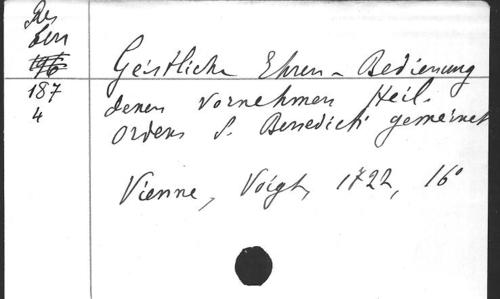 Res
Geistliche Ehren-Bedienung
187
denen vornehmen Heil.
4
Ordens S. Benedicti gemeinet
Vienne, Voigt, 1722, 16°